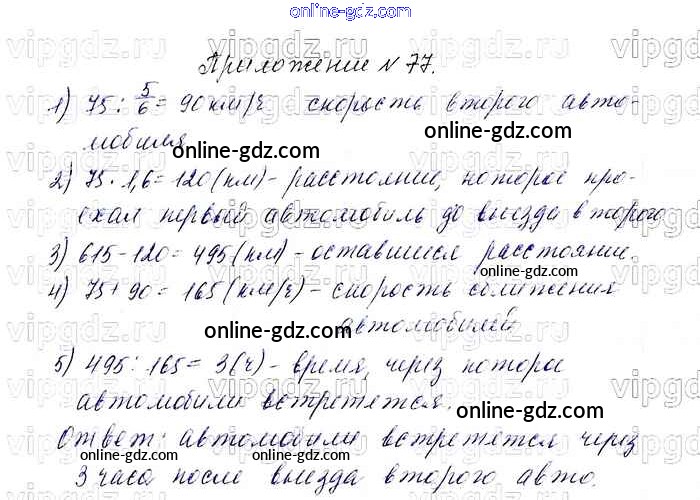 online-gdz.com
Приложение N 77.
1) 75 : 5/6 = 90 км/ч скорость второго авто-
мобиля
online-gdz.com
2) 75 · 1,6 = 120 (км) - расстояние, которое про-
ехал первый автомобиль до выезда второго
online-gdz.com
3) 615 - 120 = 495 (км) - оставшиеся расстояние.
online-gdz.com
4) 75 + 90 = 165 (км/ч) - скорость сближения
автомобилей
online-gdz.com
5) 495 : 165 = 3 (ч) - время, через которое
автомобили встретятся.
online-gdz.com
Ответ: автомобили встретятся через
online-gdz.com online-gdz.com
3 часа после выезда второго авто.